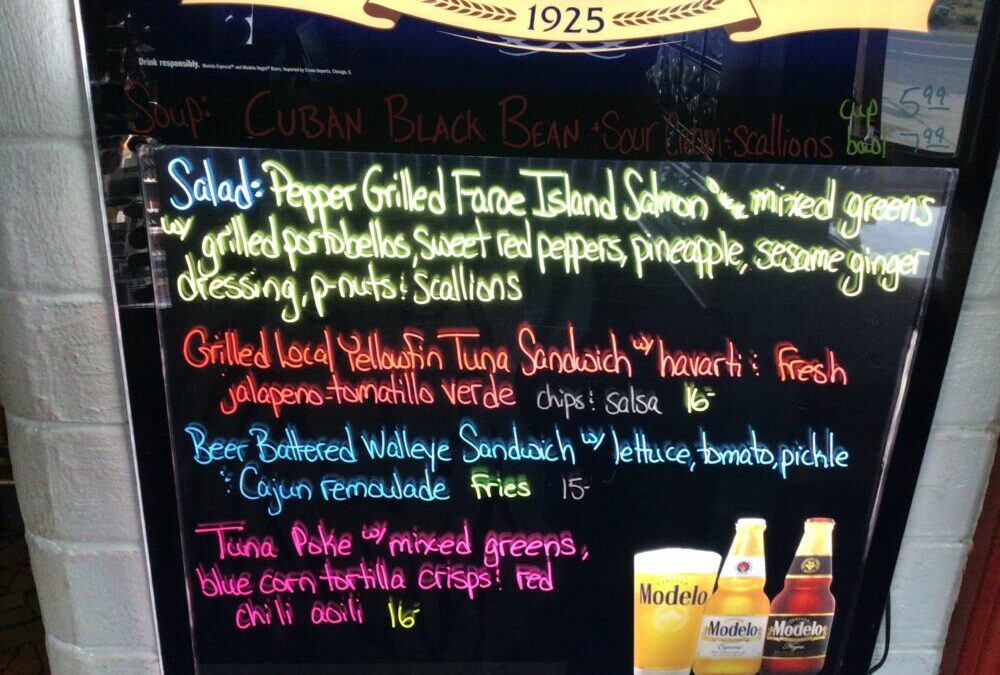 1925
Drink responsibly. Modelo Especial® and Modelo Negra® Beers. Imported by Crown Imports, Chicago, IL
Soup: CUBAN BLACK BEAN + Sour Cream + Scallions cup 5.99
bowl 7.99
Salad: Pepper Grilled Faroe Island Salmon mixed greens
w/ grilled portobellos, sweet red peppers, pineapple, sesame ginger
dressing, p-nuts & scallions
Grilled Local Yellowfin Tuna Sandwich w/ havarti & Fresh
jalapeno-tomatillo verde chips & salsa 16-
Beer Battered Walleye Sandwich w/ lettuce, tomato, pickle
& Cajun remoulade Fries 15-
Tuna Poke w/ mixed greens,
blue corn tortilla crisps & red
chili aoili 16-
Modelo
Modelo
Especial
Modelo
Negra